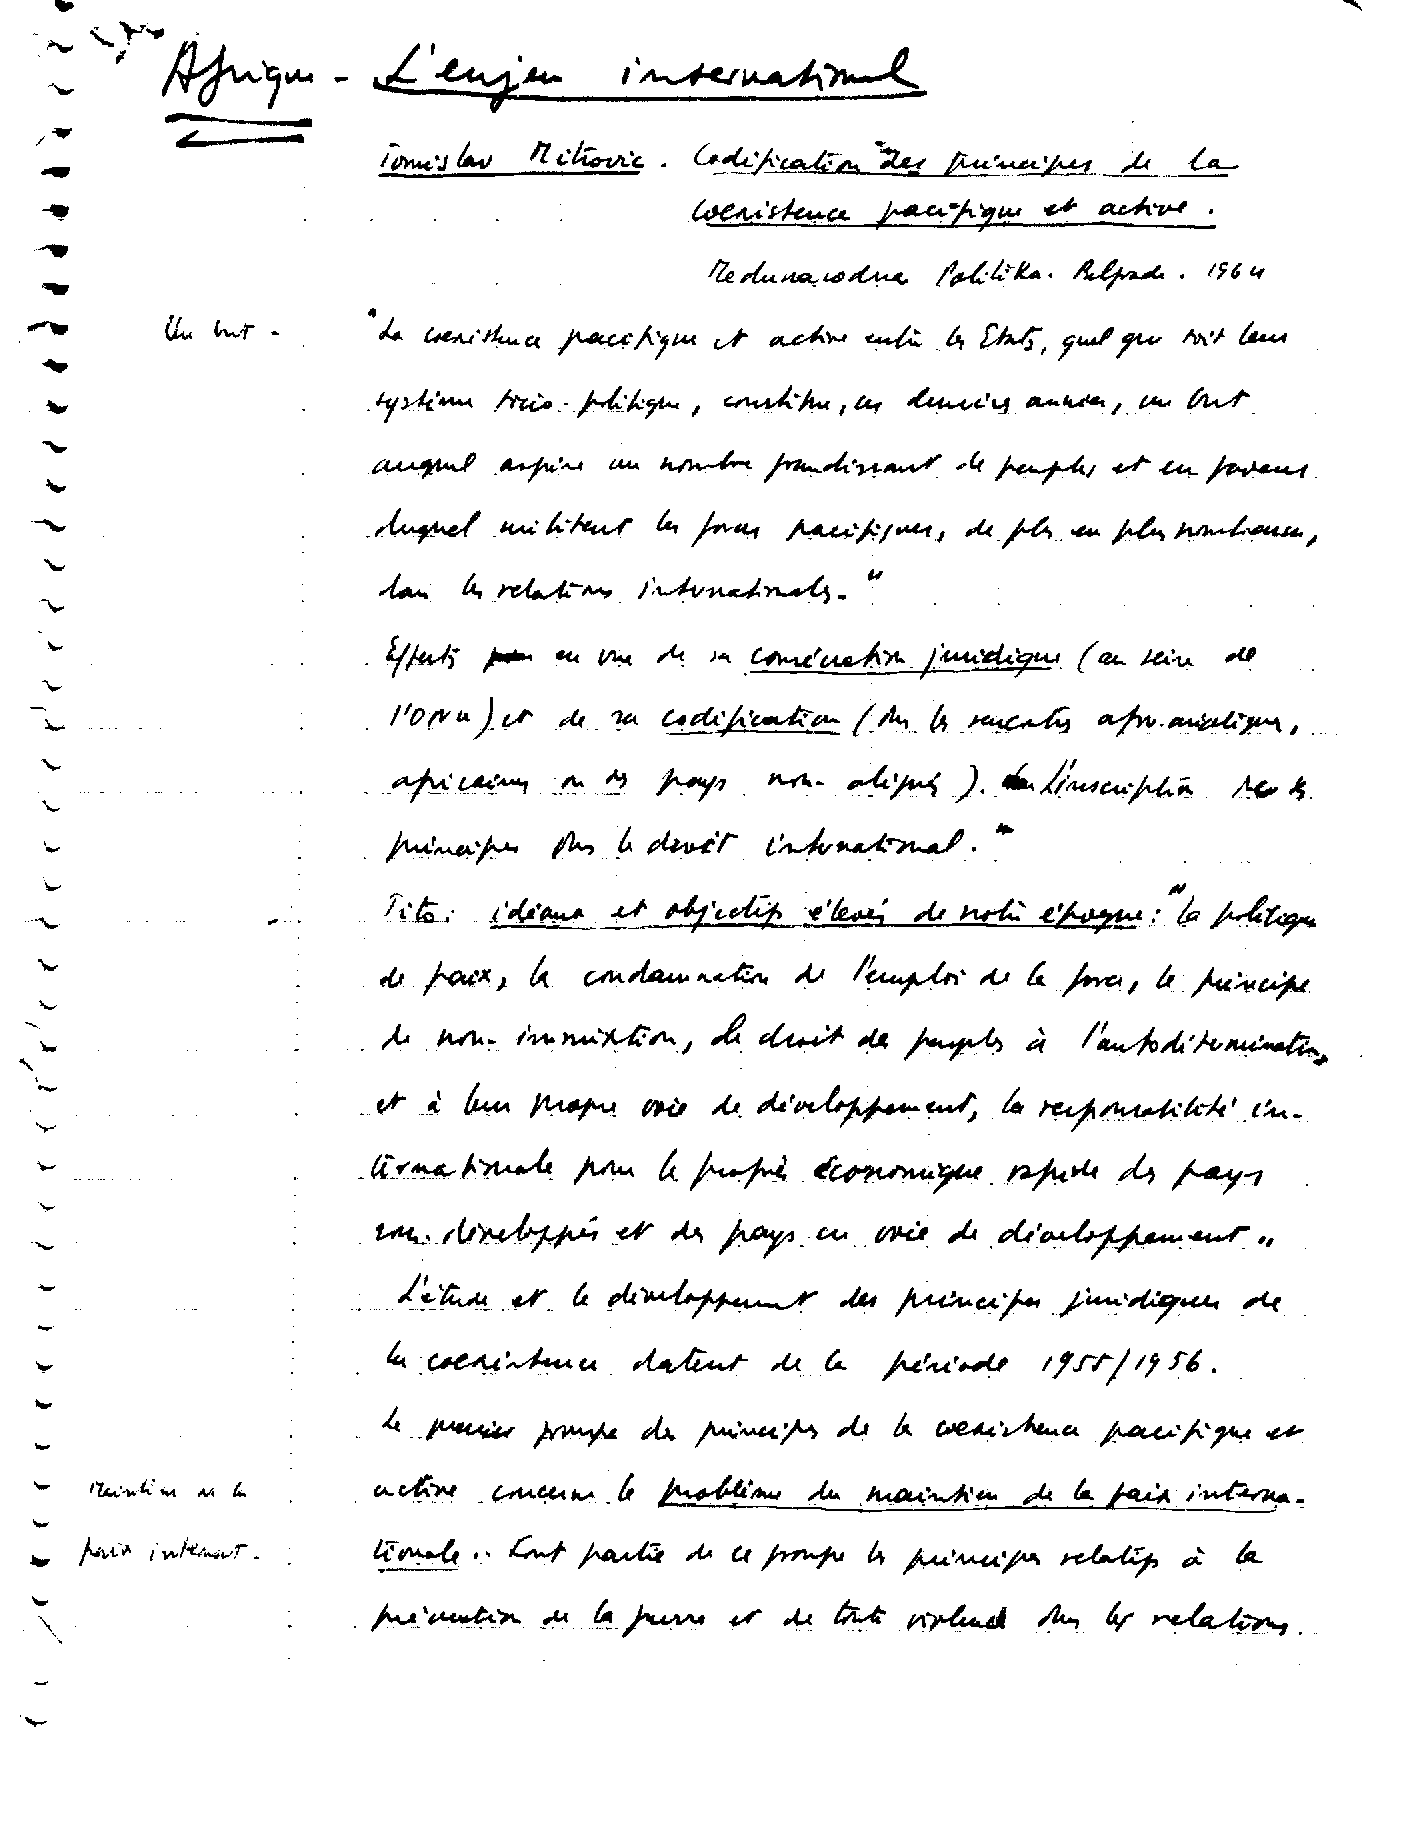 Afrique - L'enjeu international
Tomislav Mitrovic. Codification des principes de la
coexistence pacifique et active.
Medunarodna Politika. Belgrade. 1964
Un but - "La coexistence pacifique et active entre les Etats, quel que soit leur
système socio-politique, constitue, ces derniers années, un but
auquel aspire un nombre grandissant de peuples et en faveur
duquel militent les forces pacifiques, de plus en plus nombreuses,
dans les relations internationales."
Efforts en vue de sa consécration juridique (au sein de
l'ONU) et de sa codification (ds les rencontres afro-asiatiques,
africaines ou des pays non-alignés). L'inscription de ces
principes ds le droit international."
Tito: idéaux et objectifs élevés de notre époque: "la politique
de paix, la condamnation de l'emploi de la force, le principe
de non-immixtion, le droit des peuples à l'autodétermination
et à leur propre voie de développement, la responsabilité in-
ternationale pour le progrès économique rapide des pays
sous-développés et des pays en voie de développement"
L'étude et le développement des principes juridiques de
la coexistence datent de la période 1955/1956.
Le premier groupe des principes de la coexistence pacifique et
active concerne le problème du maintien de la paix interna-
tionale. Font partie de ce groupe les principes relatifs à la
prévention de la guerre et de toute violence ds les relations.
Maintien de la
paix internat.